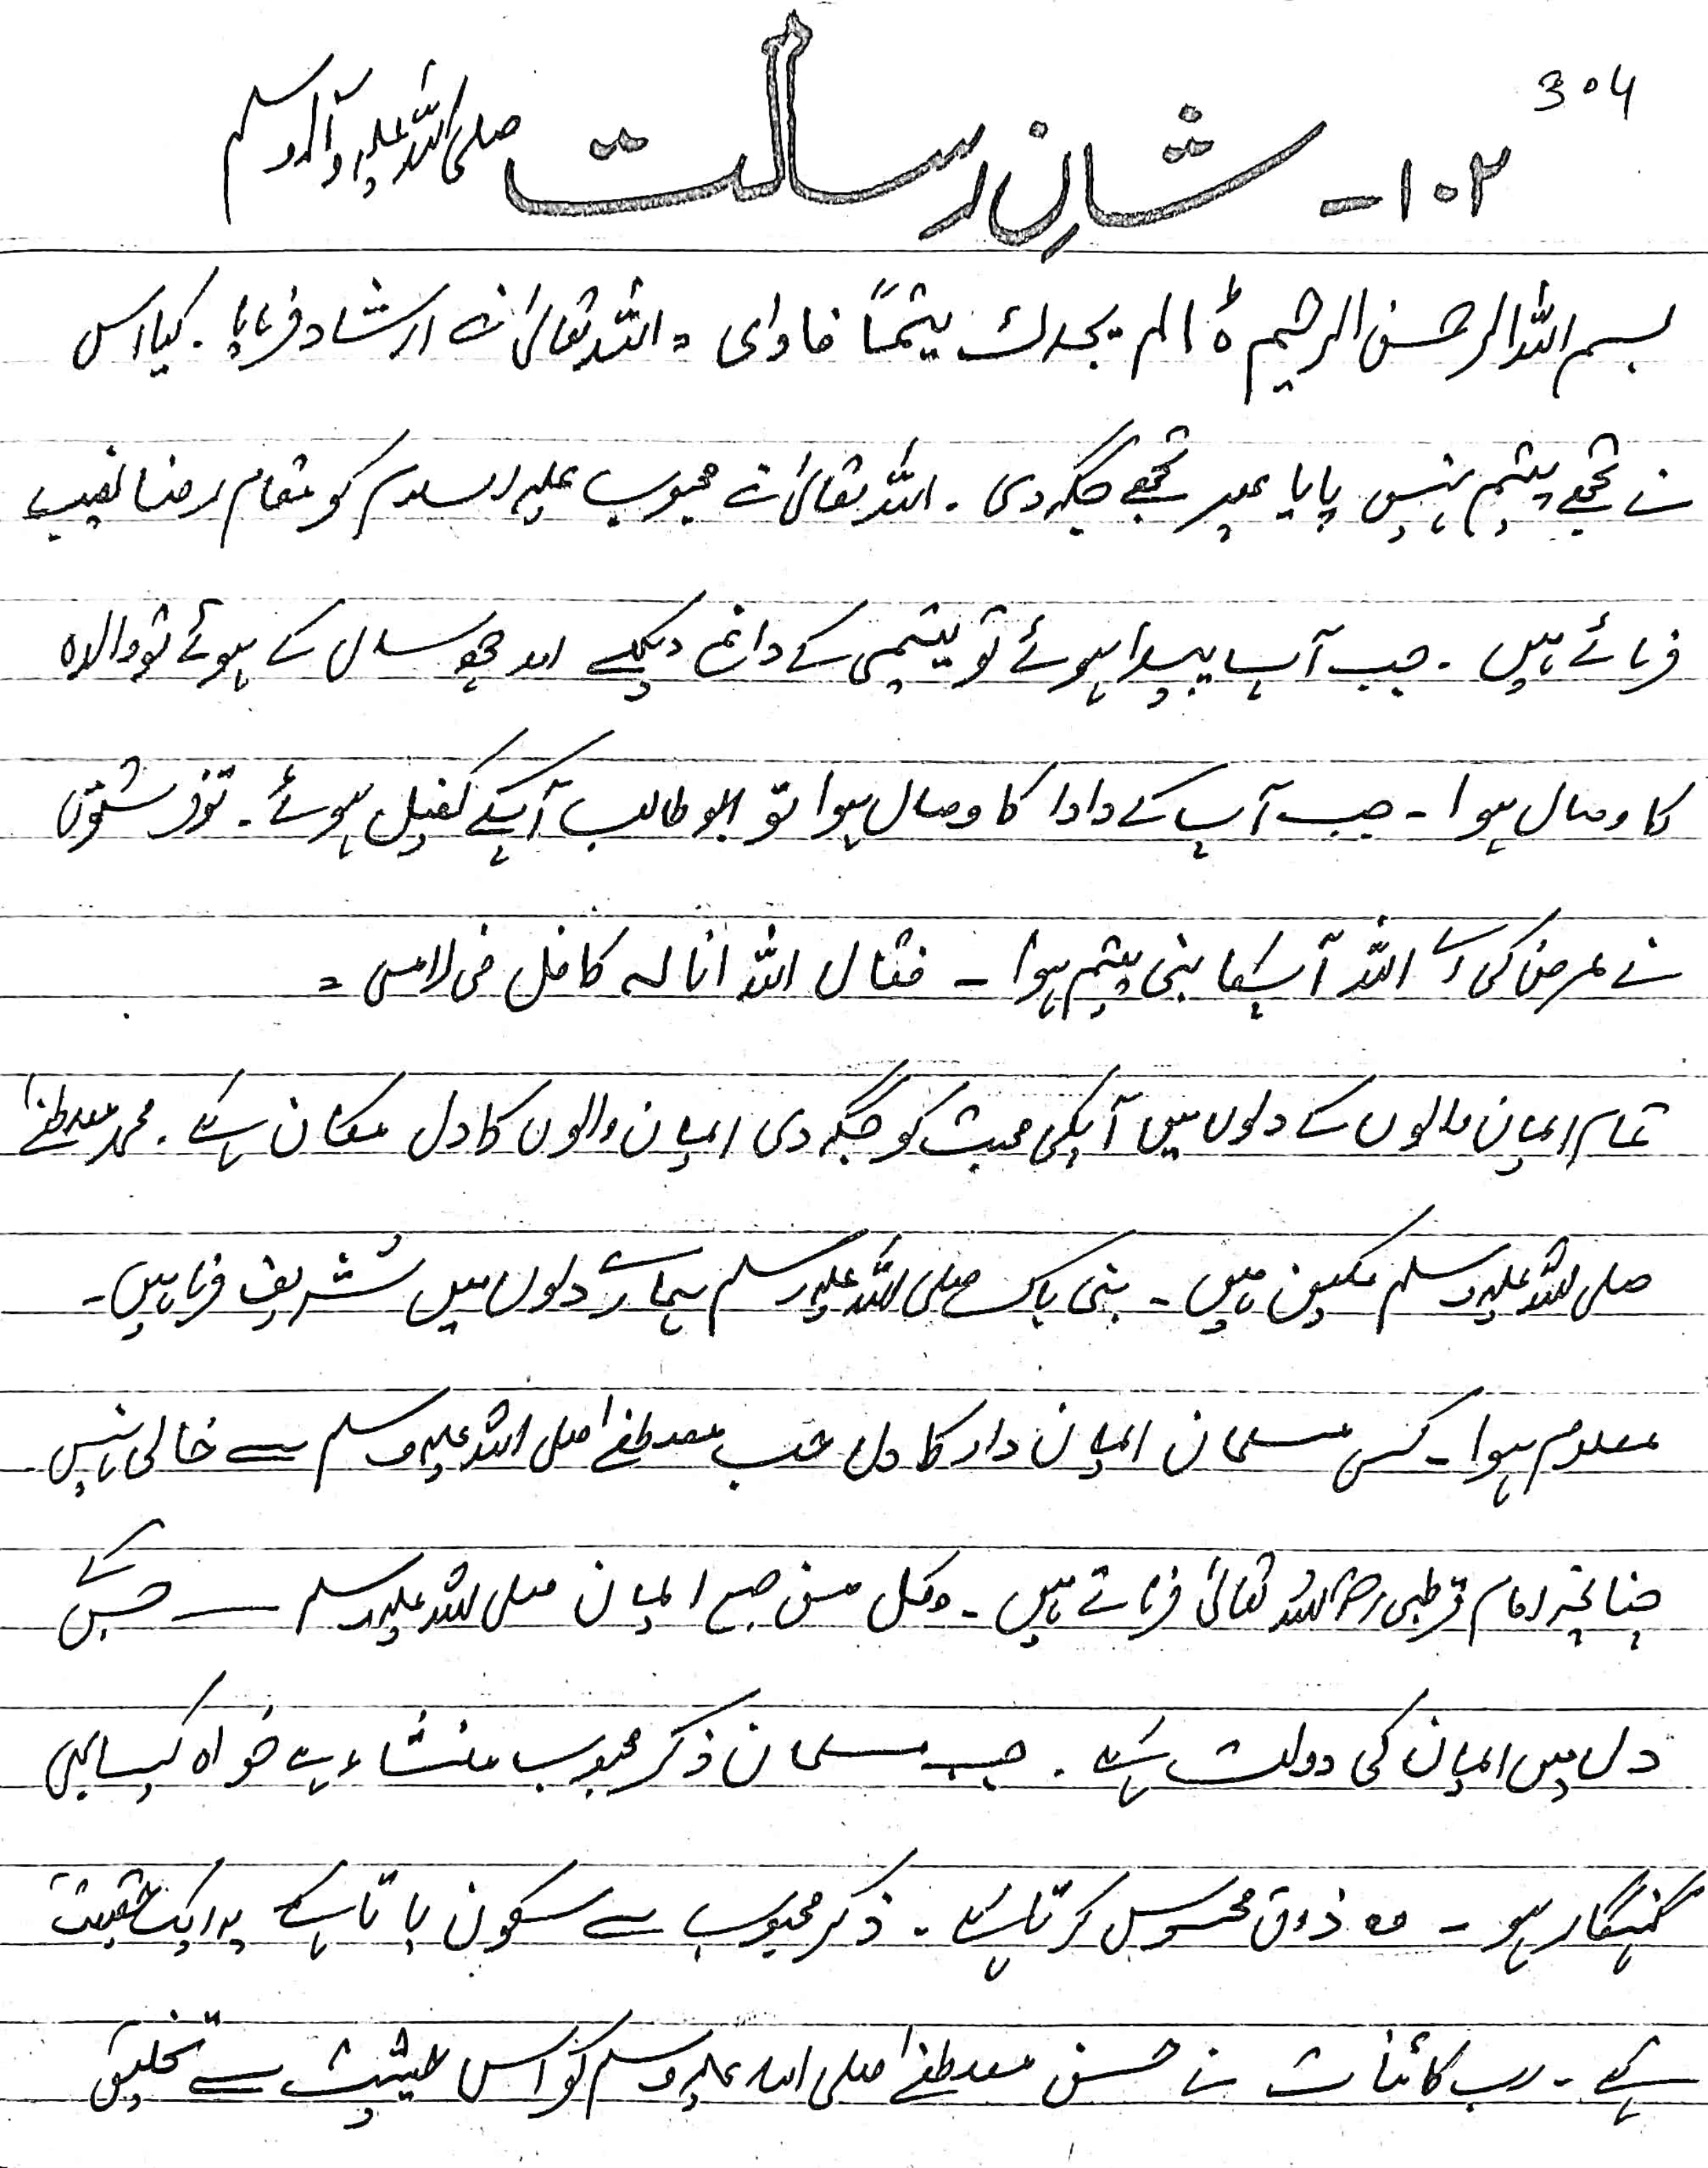 304
۱۰۲- شانِ رسالت صلی اللہ علیہ وآلہ وسلم
بسم اللہ الرحمن الرحیم ہ الم یجدك یتمًا فاوای = اللہ تعالیٰ نے ارشاد فرمایا۔ کیا اس
نے تجھے یتیم نہیں پایا پھر تجھے جگہ دی۔ اللہ تعالیٰ نے محبوب علیہ السلام کو مقام رضا نصیب
فرمائے ہیں۔ جب آپ پیدا ہوئے تو یتیمی کے داغ دیکھے اور چھ سال کے ہوئے تو والدہ
کا وصال ہوا۔ جب آپ کے دادا کا وصال ہوا تو ابو طالب آپکے کفیل ہوئے۔ تو فرشتوں
نے عرض کی اے اللہ آپکا نبی یتیم ہوا۔ فقال اللہ انا له کافل
تمام ایمان والوں کے دلوں میں آپکی محبت کو جگہ دی ایمان والوں کا دل مکان ہے۔ محمد مصطفےٰ
صلی اللہ علیہ وسلم مکین ہیں۔ نبی پاک صلی اللہ علیہ وسلم ہمارے دلوں میں تشریف فرما ہیں۔
معلوم ہوا۔ کسی مسلمان ایمان دار کا دل حب مصطفےٰ صلی اللہ علیہ وسلم سے خالی نہیں
چنانچہ امام قرطبی رضی اللہ تعالیٰ فرماتے ہیں۔ وکل من ایمان صلی اللہ علیہ وسلم — جس کے
دل میں ایمان کی دولت ہے۔ جب مسلمان ذکر محبوب سنتا ہے خواہ کیسا بھی
گنہگار ہو۔ وہ ذوق محسوس کرتا ہے۔ ذکر محبوب سے سکون پاتا ہے یہ ایک حقیقت
ہے۔ رب کائنات نے حسن مصطفےٰ صلی اللہ علیہ وسلم کو اس حیثیت سے تخلیق